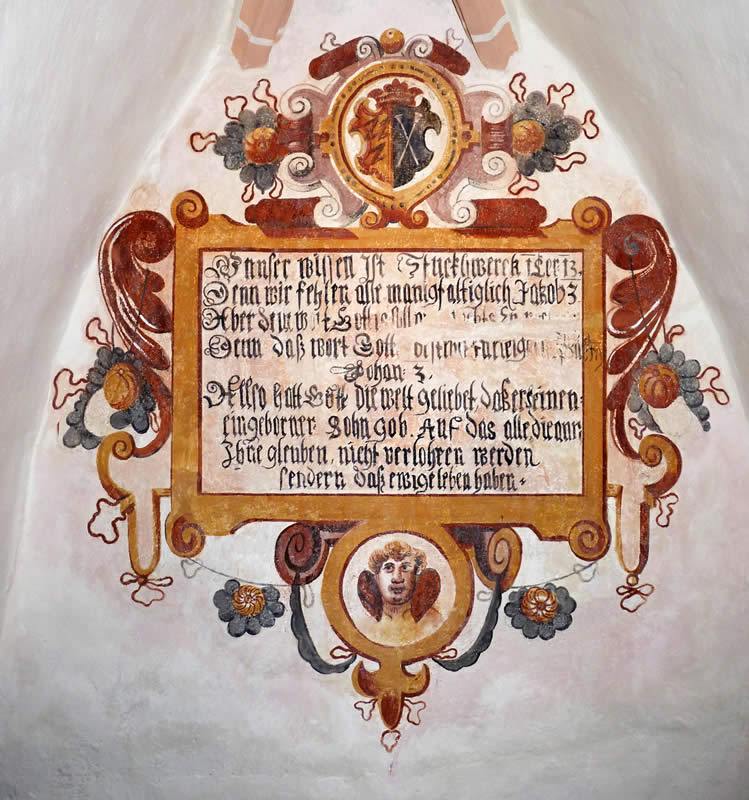 Vnser wissen ist Stuckhwerck 1 Cor 13.
Denn wir fehlen alle manigfaltiglich Jakob 3
Aber dein wort
Denn daß wort Gott
Johan 3.
Allso hatt Gott die welt geliebet, daß er seinen
eingeborner Sohn gob. Auf das alle die an
Jhne glauben, nicht verlohren werden
sondern daß ewige leben haben